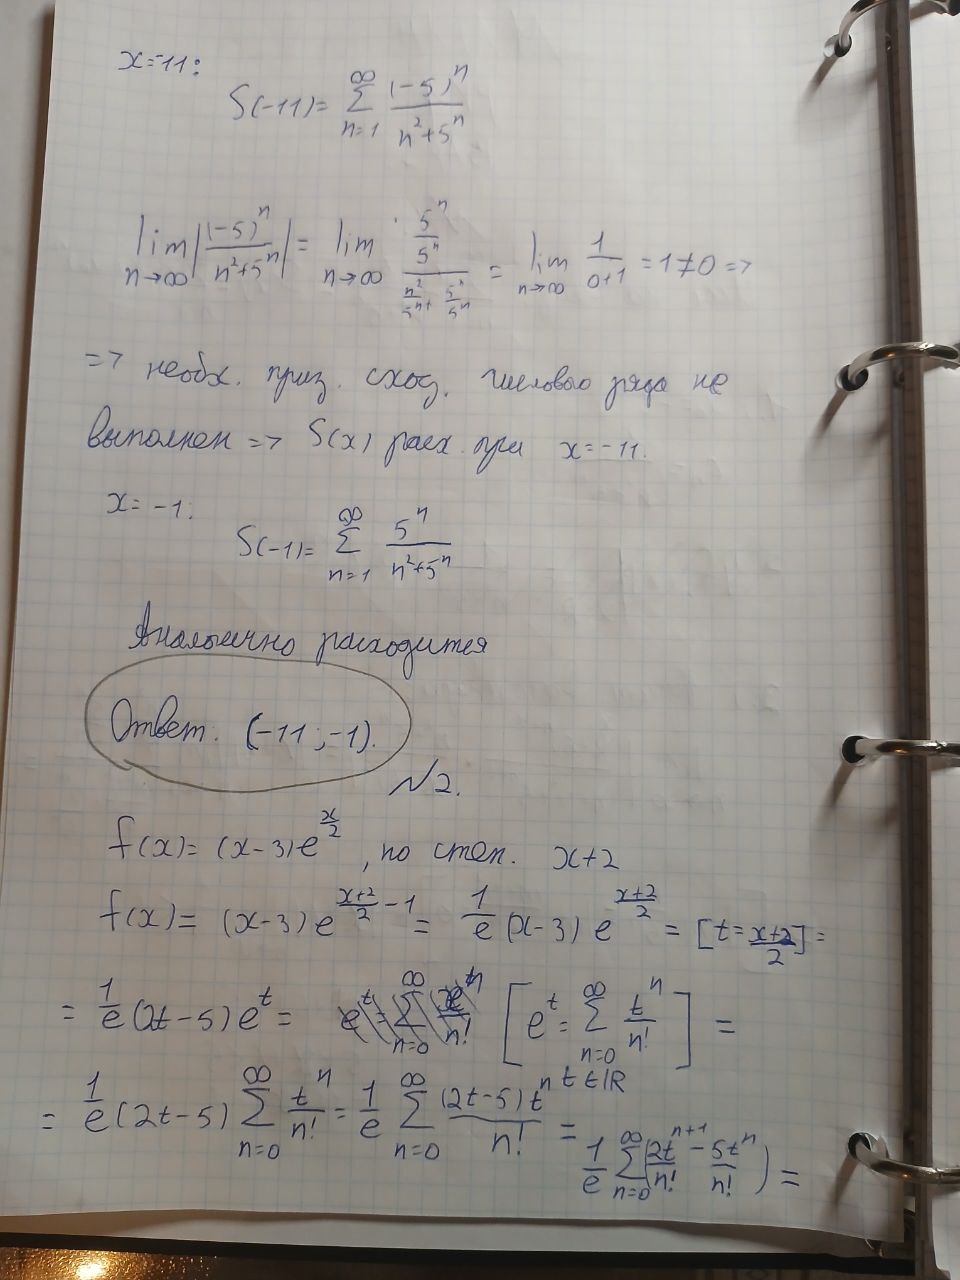 x=-11:
S(-11)= ∞ ∑ n=1 (-5)^n / (n²+5^n)
lim n→∞ |(-5)^n / (n²+5^n)| = lim n→∞ (5^n/5^n) / (n²/5^n + 5^n/5^n) = lim n→∞ 1/(0+1) = 1≠0 =>
=> необх. приз. сход. числового ряда не
выполнен => S(x) расх. при x=-11.
x=-1:
S(-1)= ∞ ∑ n=1 5^n / (n²+5^n)
Аналогично расходится
Ответ. (-11;-1).
№2.
f(x)= (x-3)e^(x/2), по степ. x+2
f(x)= (x-3)e^((x+2)/2 - 1) = 1/e (x-3) e^((x+2)/2) = [t = (x+2)/2] =
= 1/e (2t-5)e^t = [e^t = ∞ ∑ n=0 t^n/n!] =
t∈ℝ
= 1/e (2t-5) ∞ ∑ n=0 t^n/n! = 1/e ∞ ∑ n=0 (2t-5)t^n / n! =
1/e ∞ ∑ n=0 (2t^(n+1)/n! - 5t^n/n!) =